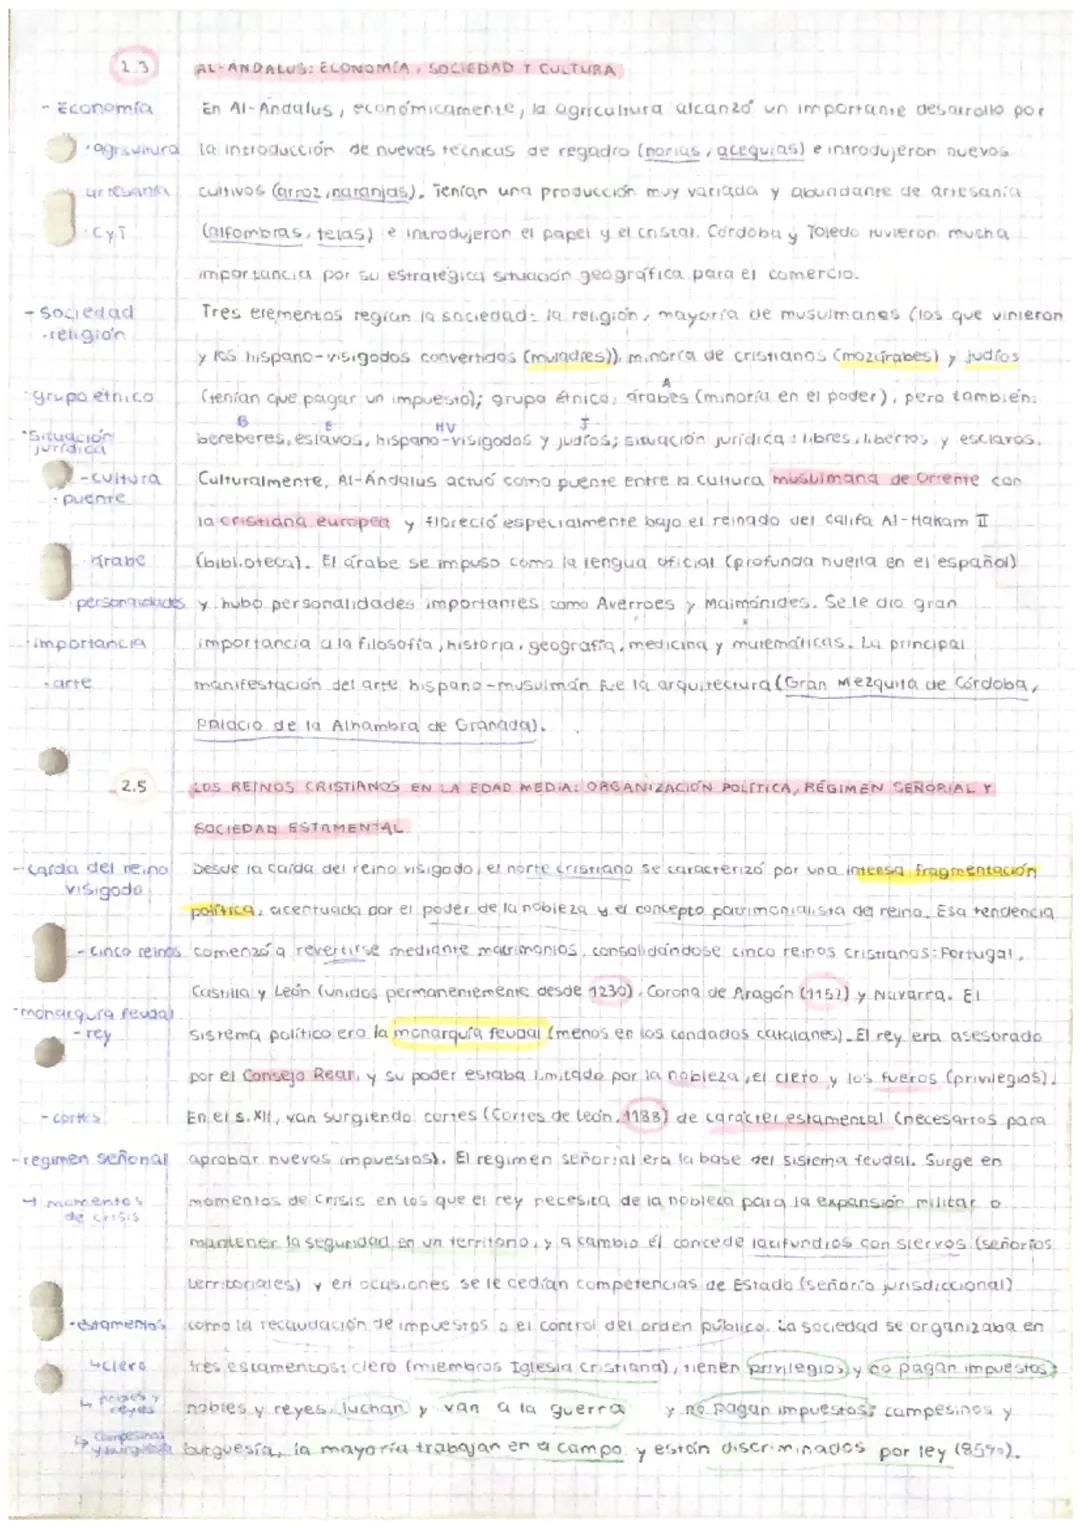 2.3 AL-ANDALUS: ECONOMÍA, SOCIEDAD Y CULTURA
- Economía En Al-Andalus, económicamente, la agricultura alcanzó un importante desarrollo por
·agricultura la introducción de nuevas técnicas de regadío (norias, acequias) e introdujeron nuevos
artesanía cultivos (arroz, naranjas). Tenían una producción muy variada y abundante de artesanía
·CyT (alfombras, telas) e introdujeron el papel y el cristal. Córdoba y Toledo tuvieron mucha
importancia por su estratégica situación geográfica para el comercio.
- Sociedad Tres elementos regían la sociedad: la religión, mayoría de musulmanes (los que vinieron
·religión y los hispano-visigodos convertidos (muladíes)), minoría de cristianos (mozárabes) y judíos
·grupo étnico (tenían que pagar un impuesto); grupo étnico, árabes (minoría en el poder), pero también:
A
B E HV J
·Situación jurídica bereberes, eslavos, hispano-visigodos y judíos; situación jurídica: libres, libertos, y esclavos.
-cultura Culturalmente, Al-Ándalus actuó como puente entre la cultura musulmana de Oriente con
·puente la cristiana europea y floreció especialmente bajo el reinado del califa Al-Hakam II
·árabe (biblioteca). El árabe se impuso como la lengua oficial (profunda huella en el español)
personalidades y hubo personalidades importantes como Averroes y Maimónides. Se le dio gran
·importancia importancia a la filosofía, historia, geografía, medicina y matemáticas. La principal
·arte manifestación del arte hispano-musulmán fue la arquitectura (Gran Mezquita de Córdoba,
Palacio de la Alhambra de Granada).
2.5 LOS REINOS CRISTIANOS EN LA EDAD MEDIA: ORGANIZACIÓN POLÍTICA, RÉGIMEN SEÑORIAL Y
SOCIEDAD ESTAMENTAL
-caída del reino visigodo Desde la caída del reino visigodo, el norte cristiano se caracterizó por una intensa fragmentación
política, acentuada por el poder de la nobleza y el concepto patrimonialista del reino. Esa tendencia
-cinco reinos comenzó a revertirse mediante matrimonios, consolidándose cinco reinos cristianos: Portugal,
Castilla y León (unidos permanentemente desde 1230), Corona de Aragón (1151) y Navarra. El
-monarquía feudal sistema político era la monarquía feudal (menos en los condados catalanes). El rey era asesorado
-rey por el Consejo Real, y su poder estaba limitado por la nobleza, el clero y los fueros (privilegios).
-cortes En el s. XII, van surgiendo cortes (Cortes de León, 1188) de carácter estamental (necesarios para
-regimen señorial aprobar nuevos impuestos). El regimen señorial era la base del sistema feudal. Surge en
↳ momentos de crisis momentos de crisis en los que el rey necesita de la nobleza para la expansión militar o
mantener la seguridad en un territorio, y a cambio él concede latifundios con siervos (señoríos
territoriales) y en ocasiones se le cedían competencias de Estado (señorío jurisdiccional)
·estamentos como la recaudación de impuestos o el control del orden público. La sociedad se organizaba en
↳clero tres estamentos: clero (miembros Iglesia cristiana), tienen privilegios y no pagan impuestos;
↳ nobles y reyes nobles y reyes, luchan y van a la guerra y no pagan impuestos; campesinos y
↳ campesinos y burguesía burguesía, la mayoría trabajan en el campo y están discriminados por ley (85%).